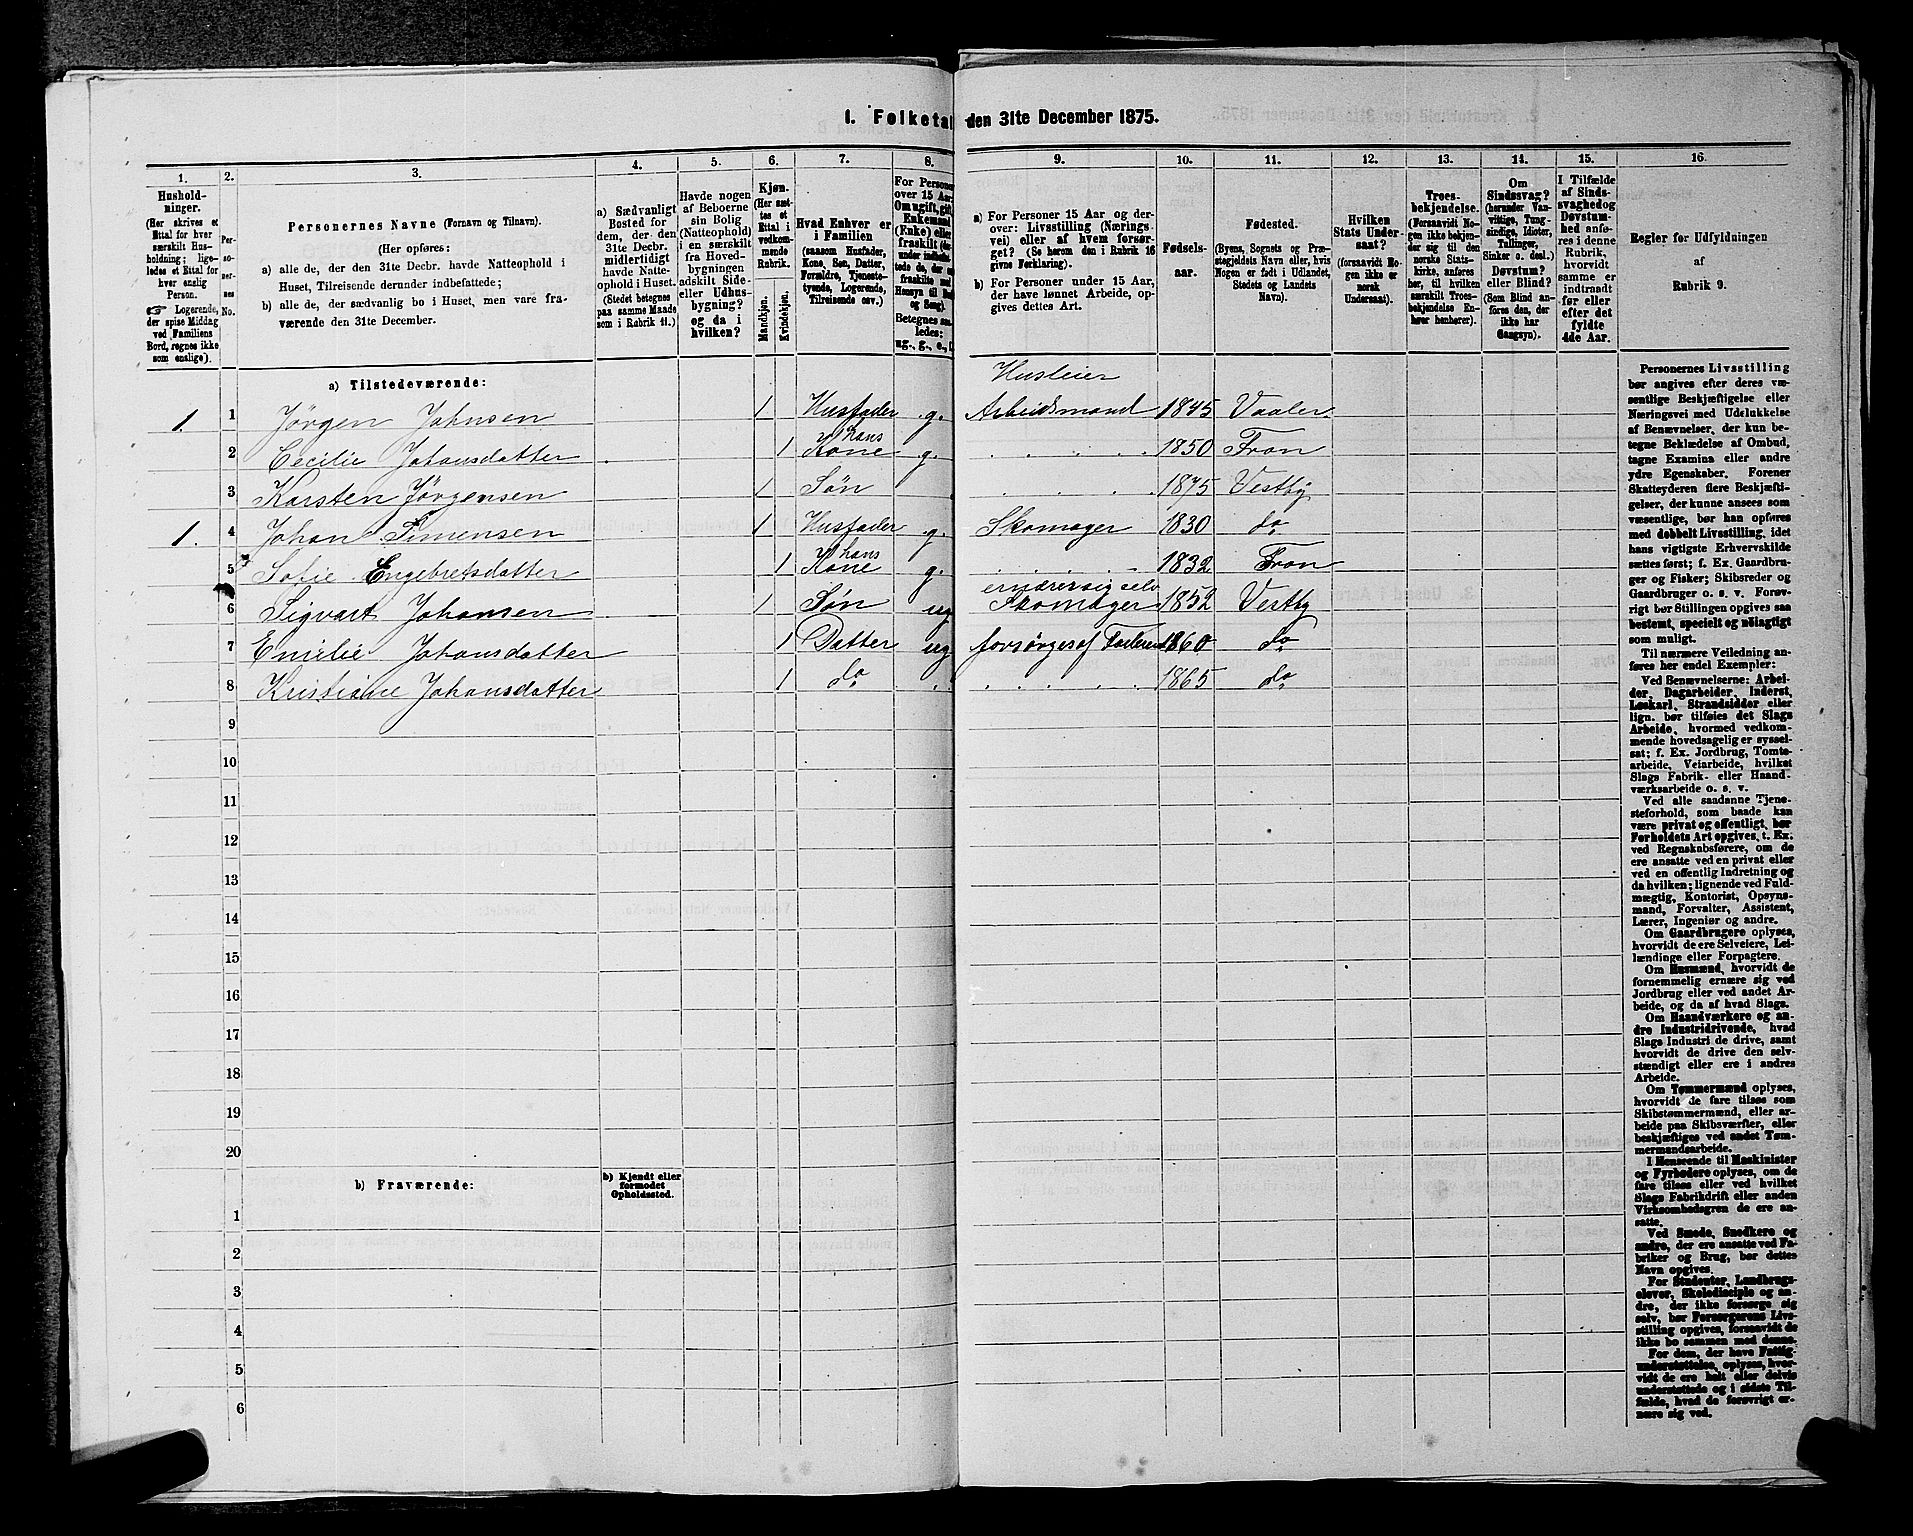 1. Folketal den 31te December 1875.
1. 2. 3. 4. 5. 6. 7. 8. 9. 10. 11. 12. 13. 14. 15. 16.
Hushold-
ninger.
(Her skrives et
Ettal for hver
særskilt Hus-
holdning; lige-
ledes et Ettal for
hver enslig
Person.
☞ Logerende,
der spise Middag
ved Familiens
Bord, regnes ikke
som enslige).
Per-
so-
ner-
nes
No.
Personernes Navne (Fornavn og Tilnavn).
(Her opføres:
a) alle de, der den 31te Decbr. havde Natteophold i
Huset, Tilreisende derunder indbefattede;
b) alle de, der sædvanlig bo i Huset, men vare fra-
værende den 31te December.
a) Sædvanligt
Bosted for
dem, der den
31te Decbr.
midlertidigt
havde Natte-
ophold i Huset.
(Stedet betegnes
paa samme Maade
som i Rubrik 11.)
Havde nogen
af Beboerne
sin Bolig
(Natteophold)
i en særskilt
fra Hoved-
bygningen
adskilt Side-
eller Udhus-
bygning?
og da i
hvilken?
Kjøn.
(Her sæt-
tes et
Ettal i
vedkom-
mende
Rubrik.
Mandkjøn.
Kvindekjøn.
Hvad Enhver er
i Familien
(saasom Husfader,
Kone, Søn, Datter,
Forældre, Tjeneste-
tyende, Logerende,
Tilreisende osv.)
For Personer
over 15 Aar:
Om ugift, gift,
Enkemand
(Enke) eller
fraskilt
Betegnes saa-
ledes:
ug., g., e.,
a) For Personer 15 Aar og der-
over: Livsstilling (Nærings-
vei) eller af hvem forsør-
get? (Se herom den i Rubrik 16
givne Forklaring).
b) For Personer under 15 Aar,
der have lønnet Arbeide, op-
gives dettes Art.
Fødsels-
aar.
Fødested.
(Byens, Sognets og Præ-
stegjeldets Navn eller, hvis
Nogen er født i Udlandet,
Stedets og Landets
Navn).
Hvilken
Stats Under-
saat?
(forsaavidt No-
gen ikke er
norsk
Undersaat).
Troes-
bekjendelse.
(Forsaavidt No-
gen ikke bekjen-
der sig til den
norske Stats-
kirke, anføres
her, til hvilken
særskilt Troes-
bekjendelse En-
hver henhører).
Om
Sindssvag?
(herunder Van-
vittige, Tung-
sindige, Idioter,
Tullinger,
Sinker o. desl.)
Døvstum?
eller Blind?
(Som Blind an-
føres den, der
ikke har
Gangsyn).
I Tilfælde
af Sinds-
svaghed og
Døvstum-
hed anfø-
res i denne
Rubrik,
hvorvidt
samme er
indtraadt
før eller
efter det
fyldte
4de Aar.
Regler for Udfyldningen
af
Rubrik 9.
a) Tilstedeværende:
Husleier
1. 1 Jørgen Johnsen 1 Husfader g. Arbeidsmand 1845 Vaaler
hans
2 Cecilie Johansdatter 1 Kone g. 1850 Fron
3 Karsten Jørgensen 1 Søn 1875 Vestby
1. 4 Johan Simensen 1 Husfader g. Skomager 1830 do
hans
5 Sofie Engebretsdatter 1 Kone g. 1832 Fron
ernærer sig selv
6 Sigvart Johansen 1 Søn ug Skomager 1852 Vestby
7 Emilie Johansdatter 1 Datter ug forsørges af Faderen 1860 do
8 Kristiane Johansdatter 1 do 1865 do
9
10
11
12
13
14
15
16
17
18
19
20
b) Fraværende:
b) Kjendt eller
formodet
Opholdssted.
1
2
3
4
5
6
Personernes Livsstilling
bør angives efter deres væ-
sentlige Beskjæftigelse eller
Næringsvei med Udelukkelse
af Benævnelser, der kun be-
tegne Beklædelse af Ombud,
tagne Examina eller andre
ydre Egenskaber. Forener
Skatteyderen flere Beskjæfti-
gelser, der kunne ansees som
væsentlige, bør han opføres
med dobbelt Livsstilling, idet
hans vigtigste Erhvervskilde
sættes først; f. Ex. Gaardbru-
ger og Fisker; Skibsreder og
Gaardbruger o. s. v. Forøv-
rigt bør Stillingen opgives saa
bestemt, specielt og nøiagtigt
som muligt.
Til nærmere Veiledning an-
føres her endel Exempler:
Ved Benævnelserne: Arbei-
der, Dagarbeider, Inderst,
Løskarl, Strandsidder eller
lign. bør tilføies det Slags
Arbeide, hvormed vedkom-
mende hovedsagelig er syssel-
sat; f. Ex. Jordbrug, Tomte-
arbeide, Veiarbeide, hvilket
Slags Fabrik- eller Haand-
værksarbeide o. s. v.
Ved alle saadanne Tjene-
steforhold, som baade kan
være privat og offentligt, bør
Forholdets Art opgives, t. Ex.
ved Regnskabsførere, om de
ere ansatte ved en privat eller
ved en offentlig Indretning og
da hvilken; lignende ved Fuld-
mægtig, Kontorist, Opsyns-
mand, Forvalter, Assistent,
Lærer, Ingeniør og andre.
Om Gaardbrugere oplyses,
hvorvidt de ere Selveiere, Lei-
lændinge eller Forpagtere.
Om Husmænd, hvorvidt de
fornemmelig ernære sig ved
Jordbrug eller ved andet Ar-
beide, og da af hvad Slags.
Om Haandværkere og an-
dre Industridrivende, hvad
Slags Industri de drive, samt
hvorvidt de drive den selv-
stændigt eller ere i andres
Arbeide.
Om Tømmermænd oplyses,
hvorvidt de fare tilsøs som
Skibstømmermænd, eller ar-
beide paa Skibsværfter, eller
beskjæftiges ved andet Tøm-
mermandsarbeide.
I Henseende til Maskinister
og Fyrbødere oplyses, om de
fare tilsøs eller ved hvilket
Slags Fabrikdrift eller anden
Virksomhedsgren de ere an-
satte.
Ved Smede, Snedkere og
andre, der ere ansatte ved Fa-
briker og Brug, bør dettes
Navn opgives.
For Studenter, Landbrugs-
elever, Skoledisciple og an-
dre, der ikke forsørge sig
selv, bør Forsørgerens Livs-
stilling opgives, forsaavidt de
ikke bo sammen med denne.
For dem, der have Fattig-
understøttelse, oplyses, hvor-
vidt de ere helt eller delvis
understøttede og i sidste Til-
fælde, hvad de forøvrigt er-
nære sig ved.